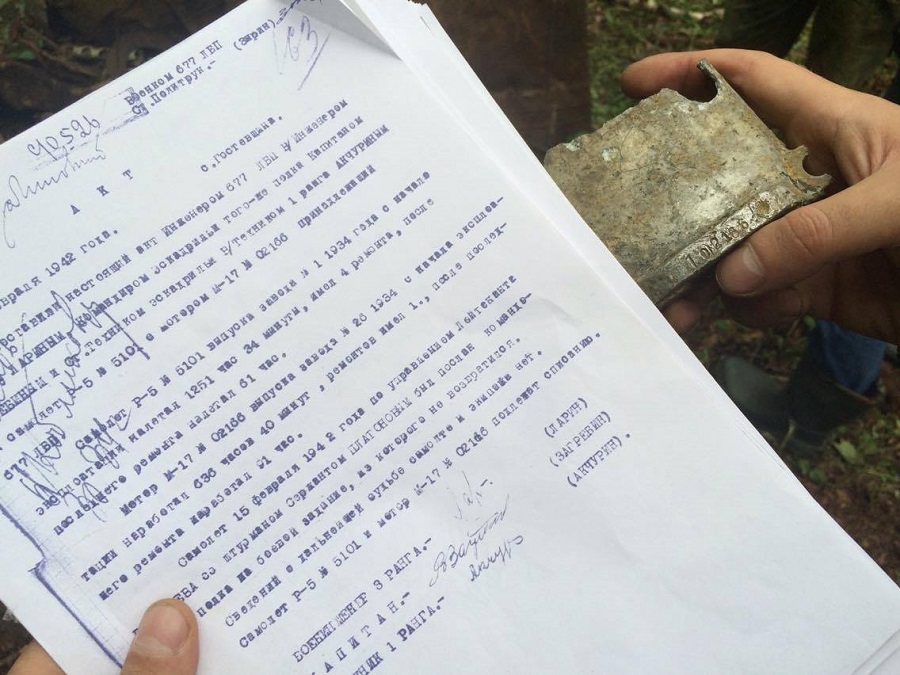 Военком 677 ЛБП
Ст.Политрук.- (Зыран).
63
40596
А К Т
с.Гостевщина.
февраля 1942 года.
настоящий акт Инженером 677 ЛБП В/Инженером
командиром эскадрильи того-же полка Капитаном
и Техником эскадрильи В/техником 1 ранга АКЧУРИНЫМ
самолет Р-5 № 5101 с мотором М-17 № 02166 принадлежащий
677 ЛБП
Самолет Р-5 № 5101 выпуска завода № 1 1934 года с начало
эксплоатации налетал 1251 час 34 минуты, имел 4 ремонта, после
последнего ремонта налетал 61 час.
Мотор М-17 № 02166 выпуска завода № 26 1934 с начала эксплоа-
тации наработал 636 часов 40 минут , ремонтов имел 1., после послед-
него ремонта наработал 61 час.
Самолет 15 февраля 1942 года по управлением Лейтенанта
ЕВА со штурманом Сержантом ШЛАТОНОВЫМ был послан командо-
полка на боевой задание, из которого не возвратился.
Сведений о дальнейшей судьбе самолте и экипаже нет.
Самолет Р-5 № 5101 и мотор М-17 № 02166 подлежат списанию.
ВОЕНИНЖЕНЕР 3 РАНГА.- (ЛАРИН)
А П И Т А Н.- (ЗАГРЕБИН)
НИК 1 РАНГА.- (АКЧУРИН).